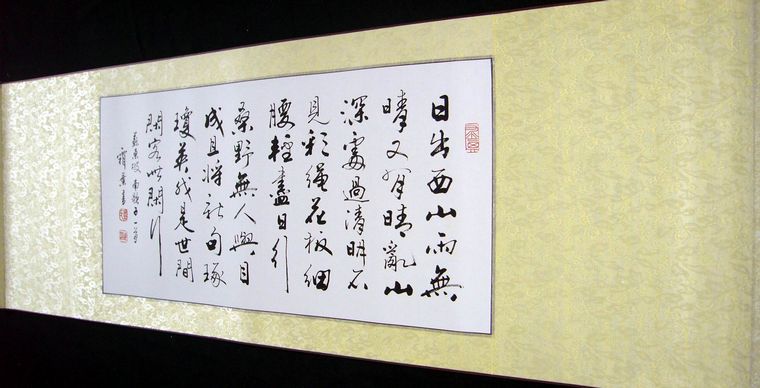 日出西山雨無
晴又有晴亂山
深處過清明不
見彩繩花板細
腰輕盡日行
桑野無人與目
成且將新句琢
瓊英我是世間
閑客此閑行
蘇東坡南歌子一首
書